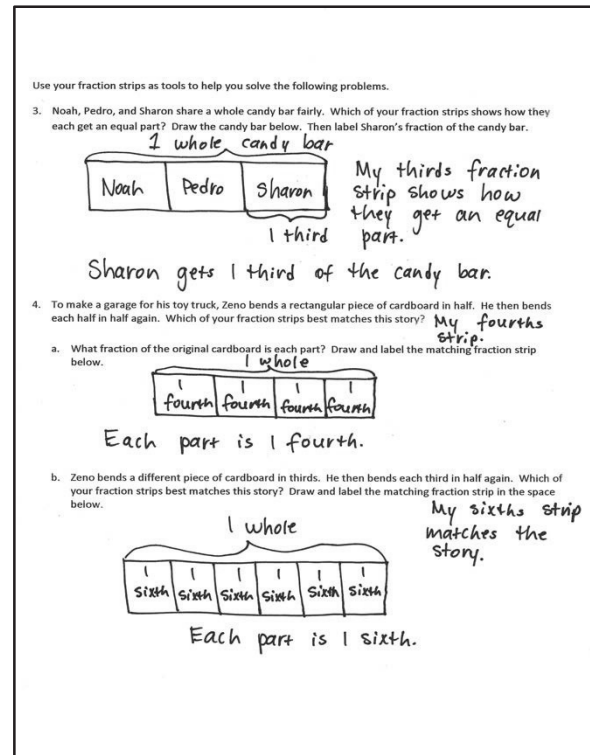 Use your fraction strips as tools to help you solve the following problems.
3. Noah, Pedro, and Sharon share a whole candy bar fairly. Which of your fraction strips shows how they
each get an equal part? Draw the candy bar below. Then label Sharon's fraction of the candy bar.
1 whole candy bar
Noah Pedro Sharon
1 third
My thirds fraction
strip shows how
they get an equal
part.
Sharon gets 1 third of the candy bar.
4. To make a garage for his toy truck, Zeno bends a rectangular piece of cardboard in half. He then bends
each half in half again. Which of your fraction strips best matches this story? My fourths
strip.
a. What fraction of the original cardboard is each part? Draw and label the matching fraction strip
below.
1 whole
1 1 1 1
fourth fourth fourth fourth
Each part is 1 fourth.
b. Zeno bends a different piece of cardboard in thirds. He then bends each third in half again. Which of
your fraction strips best matches this story? Draw and label the matching fraction strip in the space
below.
My sixths strip
matches the
story.
1 whole
1 1 1 1 1 1
sixth sixth sixth sixth sixth sixth
Each part is 1 sixth.